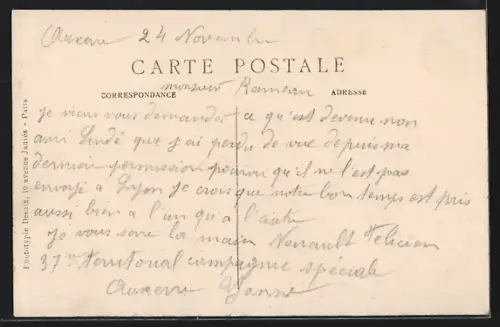 Auxerre 24 Novembre
CARTE POSTALE
CORRESPONDANCE
ADRESSE
monsieur Rameau
je viens vous demander ce qu'est devenu mon
ami Lindé que j'ai perdu de vue depuis ma
dernière permission pourvu qu'il ne l'est pas
envoyé a Lyon je crois que notre bon temps est pris
aussi bien a l'un qu'a l'autre
je vous serre la main Félicien
37me territorial compagnie spéciale
Auxerre Yonne
Phototypie Desaix, 19 avenue Jaurès - Paris